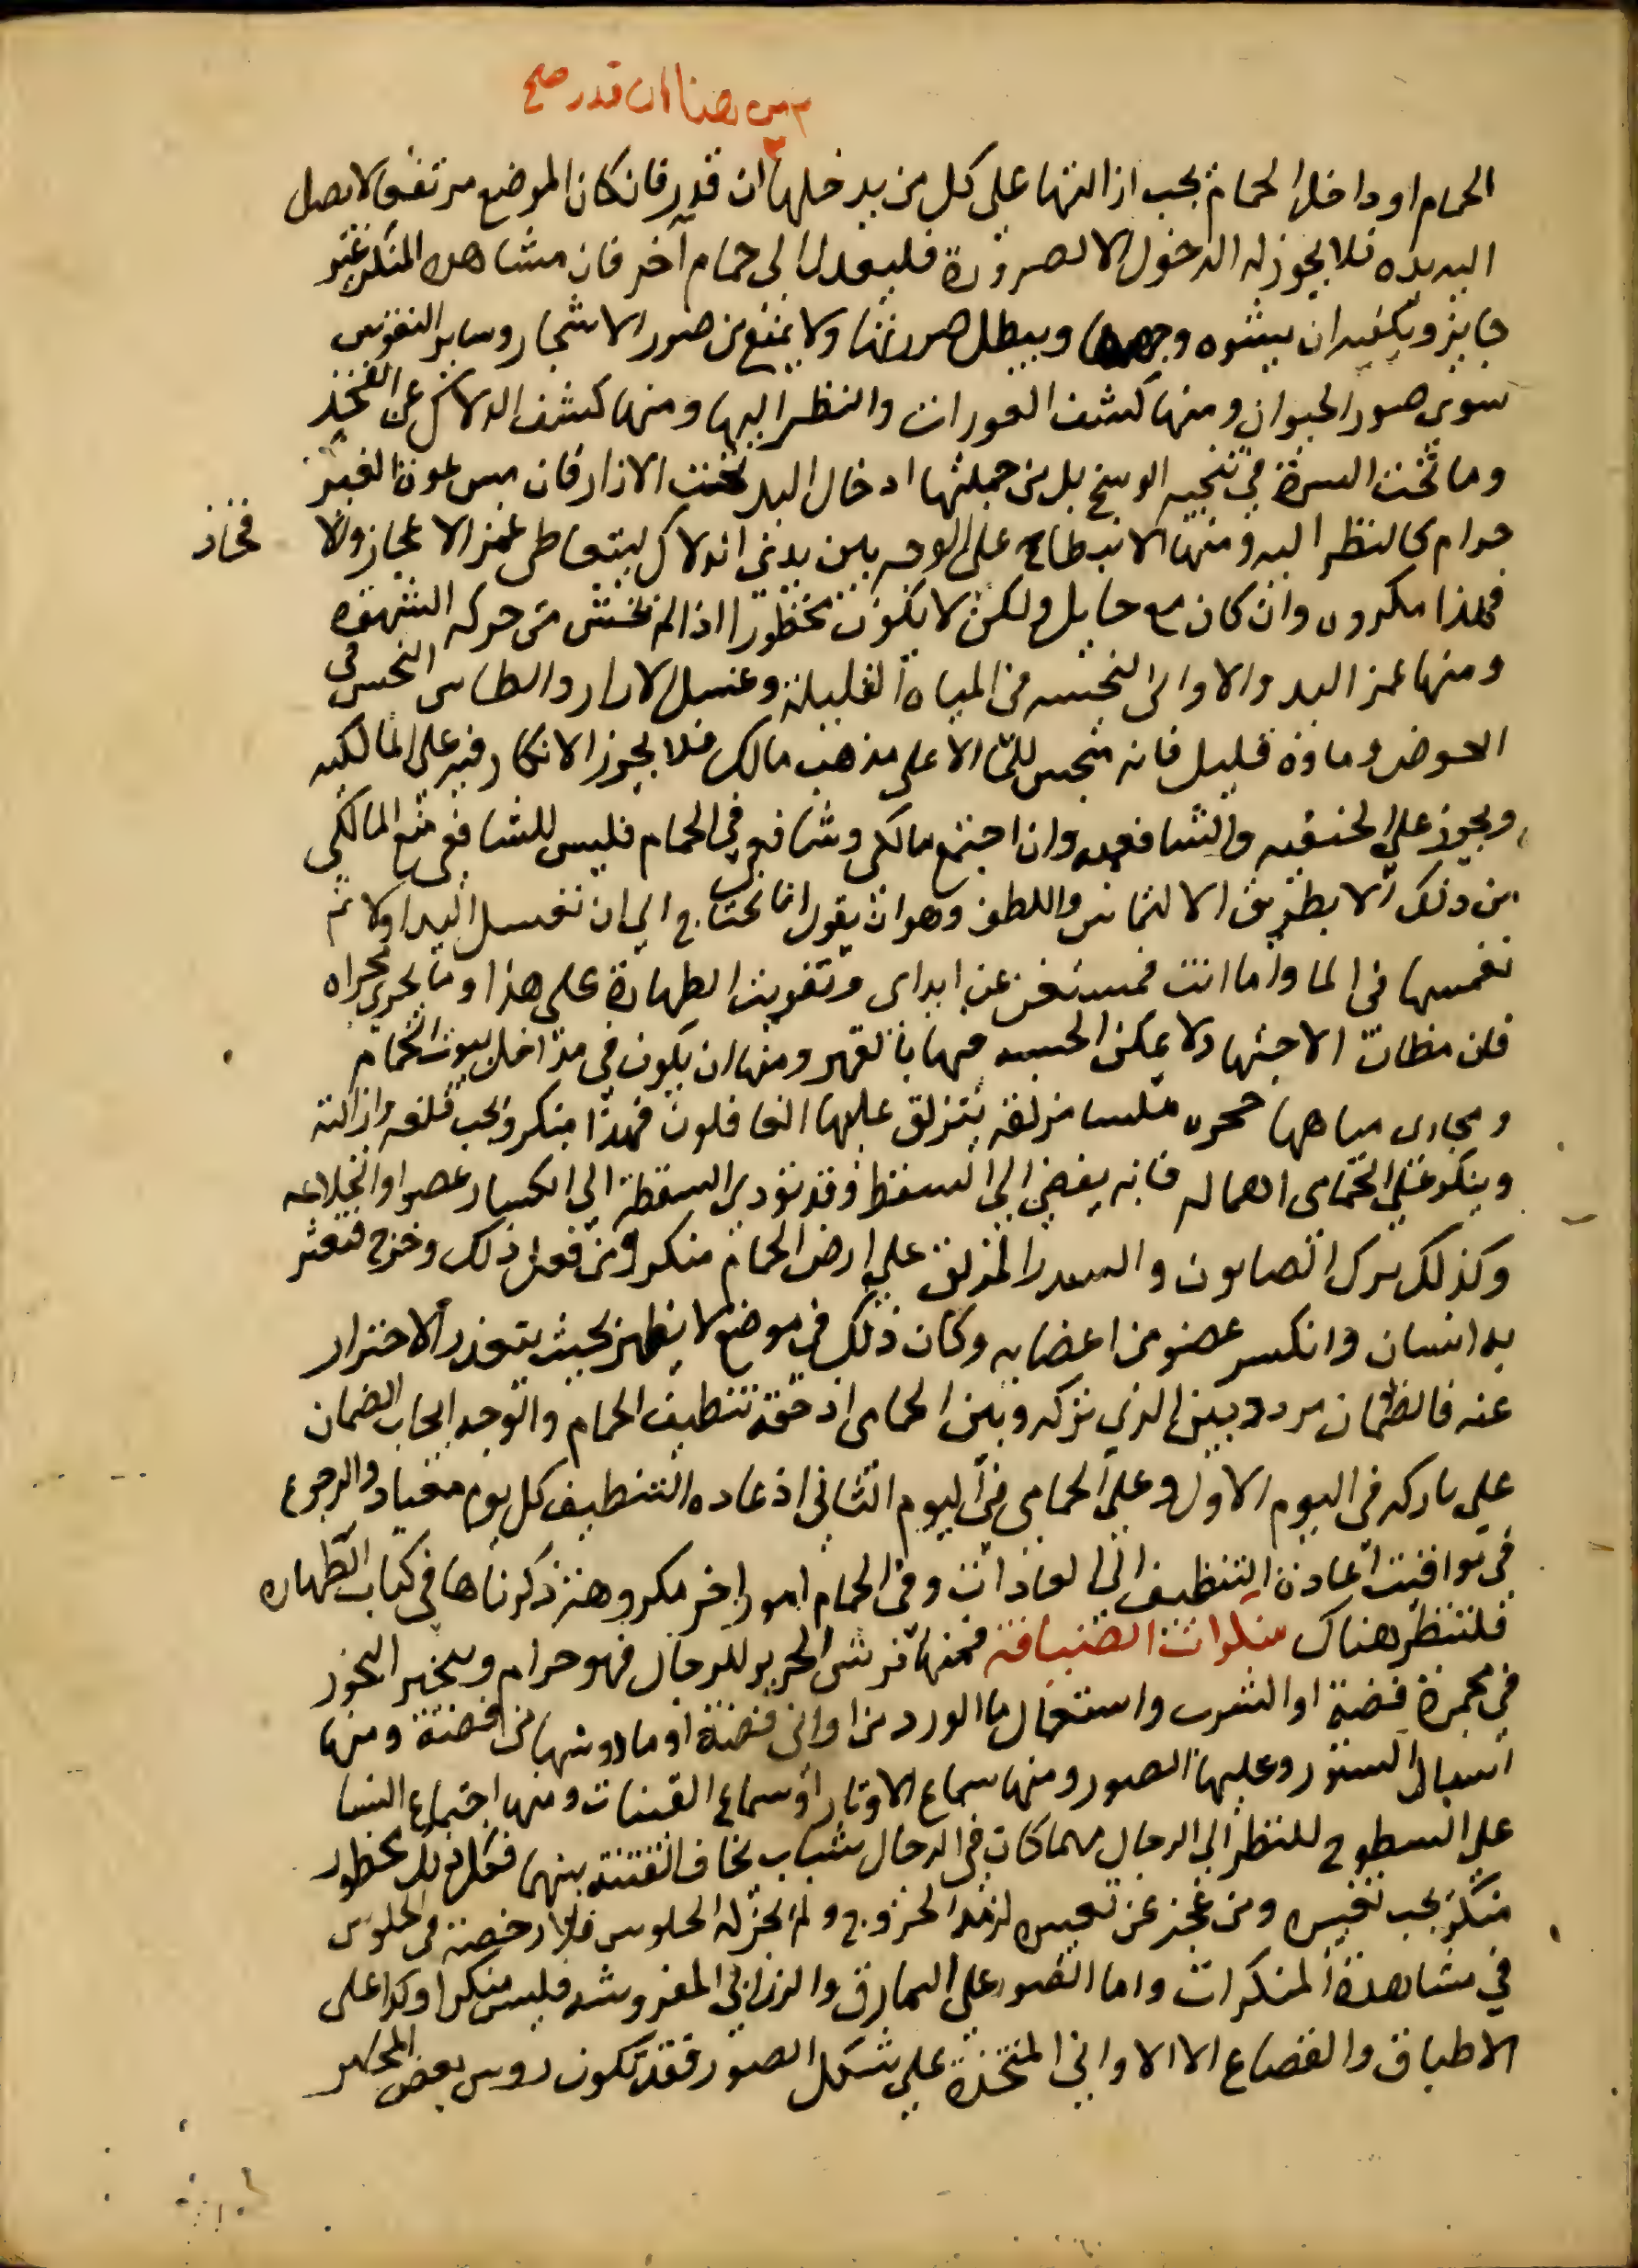 الحمام او داخل الحمام يجب ازالتها على كل من يدخلها ان قدر فان كان الموضع مرتفعا لا يصل
اليه يده فلا يجوز له الدخول الا لضرورة فليعدل الى حمام آخر فان مشاهدة المنكر غير
جايز ويكفيه ان يشوه وجهها ويبطل صورتها ولا يمنع من صور الاشجار وساير النقوش
سوى صور الحيوان ومنها كشف العورات والنظر اليها ومنها كشف الدلاك عن الفخذ
وما تحت السرة في تنحيه الوسخ بل من جملتها ادخال اليد تحت الازار فان مس عورة الغير
حرام كالنظر اليه ومنها الانبطاح على الوجه بين يدي الدلاك ليتعاطى غمز الاعجاز والا
فخاذ
فهذا مكروه وان كان مع حايل ولكن لا يكون محظورا اذا لم يخش من حركه الشهوه
ومنها غمز اليد والاواني النجسه في المياه القليلة وغسل الازار والطاس النجس في
الحوض وماوه قليل فانه منجس للماء الا على مذهب مالك فلا يجوز الانكار فيه على المالكيه
ويجوز على الحنفيه والشافعيه وان اجتمع مالكي وشافعي في الحمام فليس للشافعي منع المالكي
من ذلك الا بطريق الالتماس واللطف وهو ان يقول انا نحتاج الى ان نغسل اليد اولا ثم
نغمسها في الما واما انت فمستغن عن ايذاى وتفويت الطهارة على هذا وما يجري مجراه
فان مظان الاجتهاد لا يمكن الحسبه فيها بالقهر ومنها ان يكون في مداخل بيوت الحمام
ومجارى مياهها حجره ملسا مزلقه يتزلق عليها الغافلون فهذا منكر ويجب قلعه وازالته
وينكر على الحمامى اهماله فانه يفضي الى السقطة وقد تودي السقطة الى انكسار عضو او انخلاعه
وكذلك ترك الصابون والسدر المزلق على ارض الحمام منكر ومن فعل ذلك وخرج فتعثر
به انسان وانكسر عضو من اعضايه وكان ذلك في موضع لا يظهر بحيث يتعذر الاحتراز
عنه فالضمان مردد بين الذي تركه وبين الحمامى اذ حقه تنظيف الحمام والوجه ايجاب الضمان
على تاركه في اليوم الاول وعلى الحمامى في اليوم الثاني اذ عاده التنظيف كل يوم معتاد والرجوع
في مواقيت اعادة التنظيف الى العادات وفي الحمام امور اخر مكروهة ذكرناها في كتاب الطهاره
فلتنظر هناك منكرات الضيافة فمنها فرش الحرير للرجال فهو حرام وتبخير البخور
في مجمرة فضة او الشرب واستعمال ما الورد من اواني فضة او ما روسها من فضة ومنها
اسبال الستور وعليها الصور ومنها سماع الاوتار او سماع القينات ومنها اجتماع النسا
على السطوح للنظر الى الرجال مهما كان في الرجال شباب يخاف الفتنة بينهم فكل ذلك محظور
منكر يجب تغييره ومن عجز عن تغييره لزمه الخروج ولم يجز له الجلوس فلا رخصة في الجلوس
في مشاهدة المنكرات واما الصور على النمارق والزرابي المفروشه فليس منكرا وكذا على
الاطباق والقصاع الا الاواني المتخذة على شكل الصور فقد تكون روس بعض المجامر